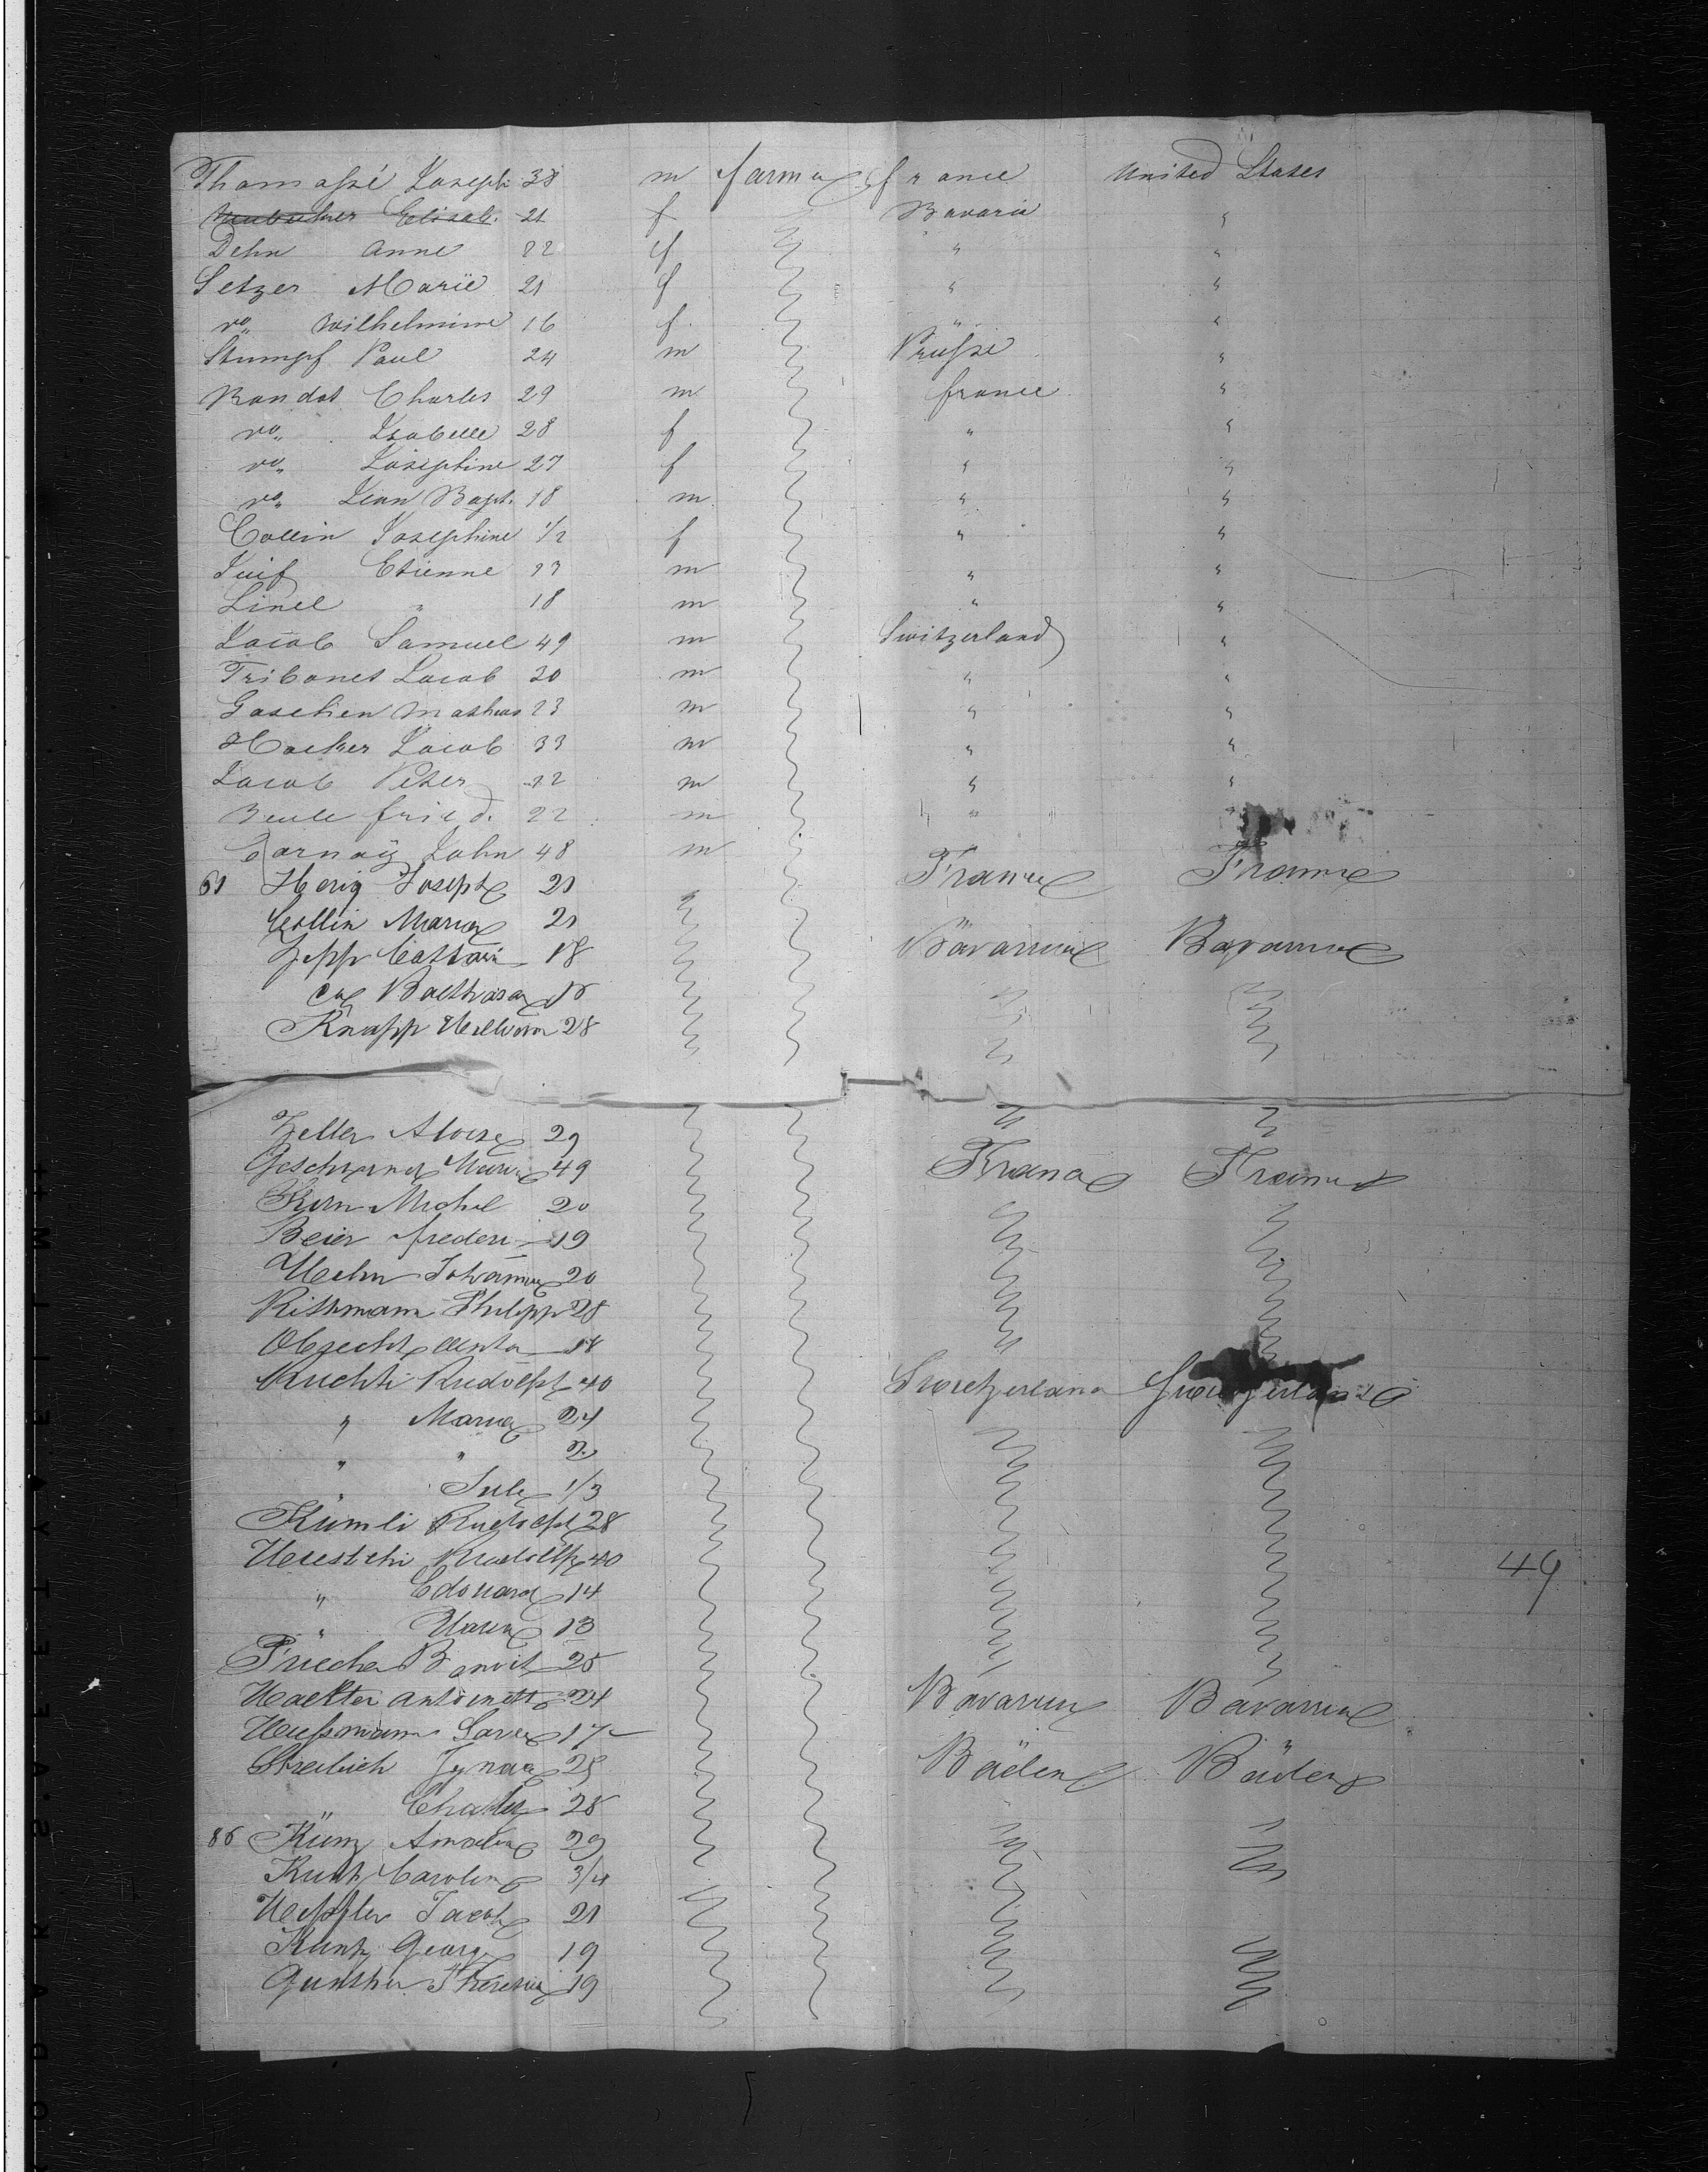 Thomassé Joseph 38 m farmer france United States
Elisab. 21 f Bavaria "
Dehn Anne 22 f " "
Setzer Marie 21 f " "
vo" Wilhelmine 16 f. " "
Stumpf Paul 24 m Prusse "
Randot Charles 29 m france "
vo" Isabelle 28 f " "
vo" Josephine 27 f " "
vo" Jean Bapt. 18 m " "
Collin Josephine 1/2 f " "
Juif Etienne 27 m " "
Linel " 18 m " "
Jacob Samuel 49 m Switzerland "
Tribonet Jacob 30 m " "
Gaschen Mathias 23 m " "
Hacker Jacob 33 m " "
Jacob Peter 22 m " "
Beule fried. 22 m " "
Jarnaÿ John 48 m
61 Herig Joseph 21 France France
Collin Maria 21
Zepp Cathari 18 Bavaria Bavaria
Balthasar 18
Knapp William 28
Zeller Aloise 29
Maria 49 France France
Kern Michel 20
Beier frederi 19
Hehn Johanna 20
Rithmann Philipp 28
Obrecht 18
Ruchti Rudolph 40 Switzerland Switzerland
" Maria 24
" " 2
" Jule 1/3
Kümli Rudolph 28
Rudolph 40
" Edouard 14 49
" Maria 13
Benoit 25
Antoinette 24 Bavaria Bavaria
Hussmann Sara 17
Streibich Ignaz 25 Baden Baden
" Charles 28
86 Kunz Amalia 29
Kuntz Carolin 3/4
Jacob 21
Kuntz Georg 19
Gunther Theresia 19